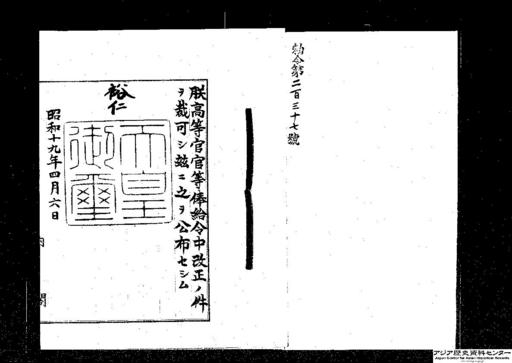 勅令第二百三十七號
朕高等官官等俸給令中改正ノ件
ヲ裁可シ玆ニ之ヲ公布セシム
裕仁
天皇御璽
昭和十九年四月六日
内閣
アジア歴史資料センター
Japan Center for Asian Historical Records